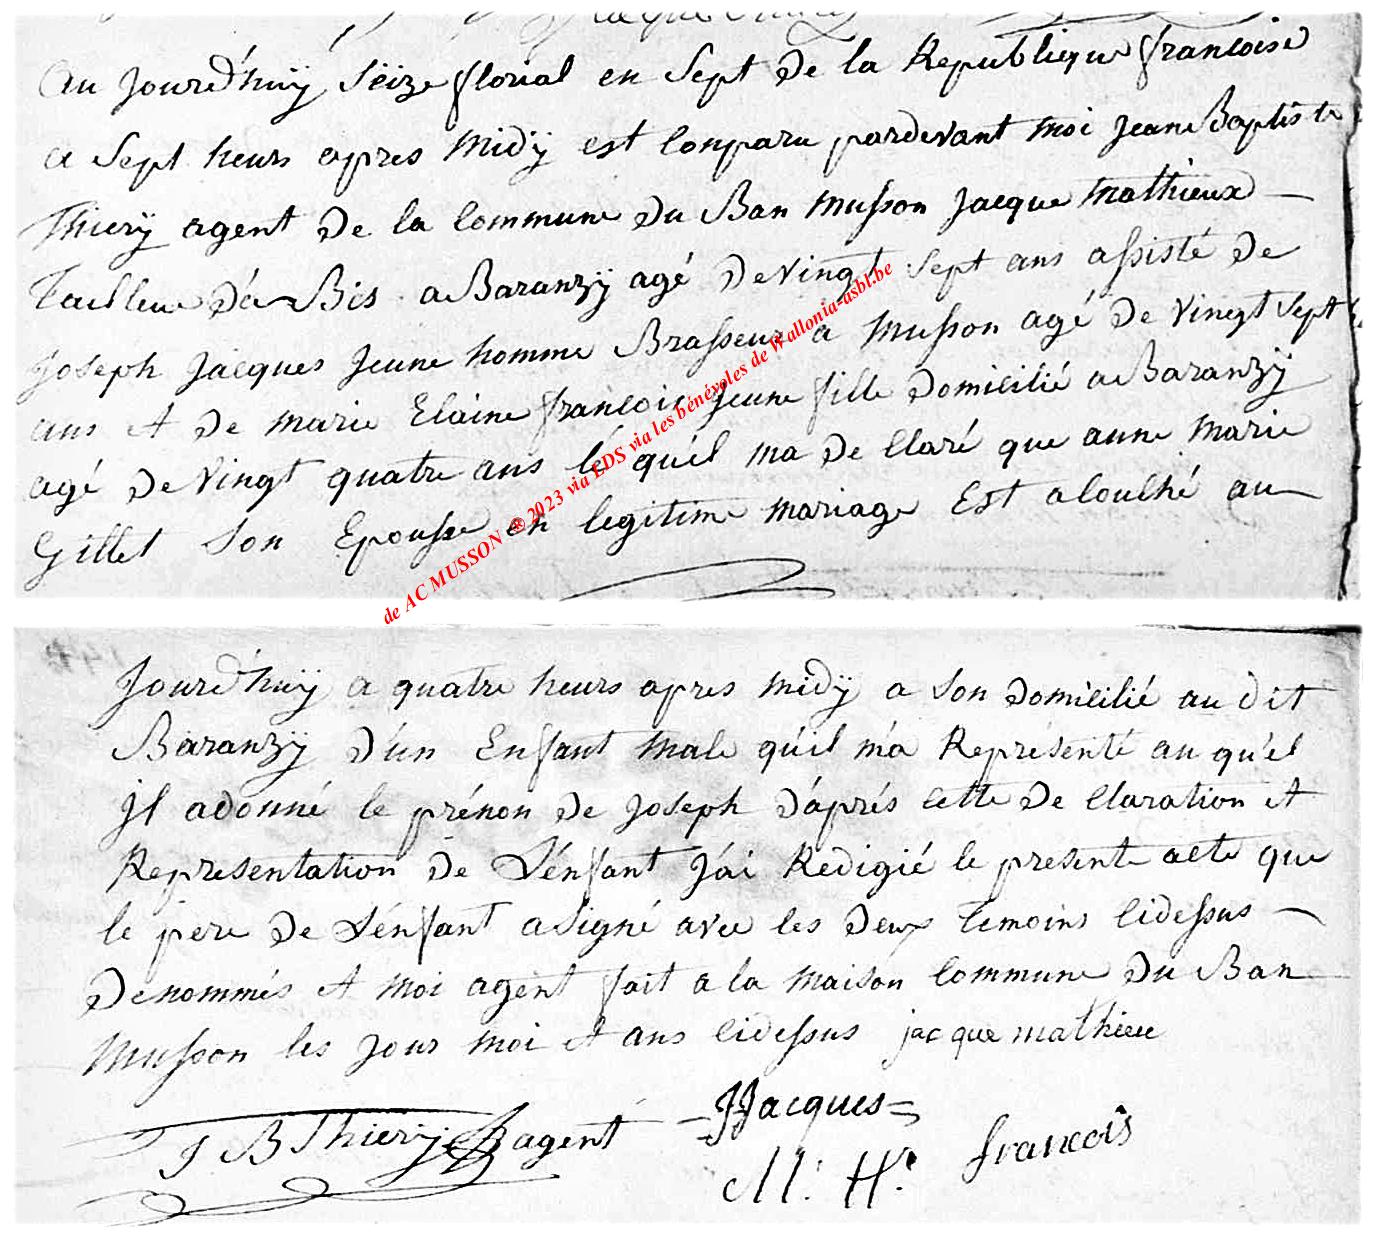 au jourd'huÿ Sëize florial en Sept de la Republique francoise
a Sept heurs apres Midÿ est Comparu pardevant moi Jean Baptiste
Thierÿ agent de la Commune du Ban Musson Jacque Mathieux —
Tailleur da Bis a Baranzÿ agé de vingt Sept ans assisté de
Joseph Jacques Jeune homme Brasseur a Musson agé de vinegt Sept
ans et de marie Elaine francois Jeune fille domicilié a Baranzÿ
agé de vingt quatre ans lé quél ma de Claré que anne Marie
Gillet Son Epousse en legitime mariage Est aCouché au
de AC MUSSON ® 2023 via EDS via les bénévoles de Wallonia-asbl.be
Jourd'huÿ a quatre heurs apres midÿ a Son domicilié au dit
Baranzÿ d'un Enfant Male qu'il m'a Représenté au qu'el
Jl adonné le prénon de Joseph d'áprés cette de Claration et
Representation de L'énfant J'ái Redigié le presente acte que
le pere de L'énfant a Signé avec les deux temoins Cidessus —
Denommés et moi agent fait a la maison Commune du Ban
Musson les Jour moi et ans Cidessus jacque mathieu
J B Thierÿ agent
JJacques
M: H: francois